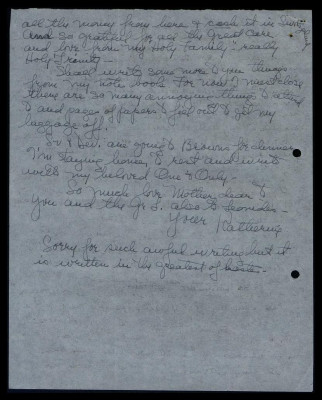 all the money from here & cash it in there
And so grateful for all the Great Care
and love from my Holy Family - really
Holy Trinity -
Should write some more to you things
from my note book. For now I must close
there are so many annoying things to attend
to and pages of papers to fill out to get my
luggage off.
and Bev. are going to Browns for dinner
I'm staying home to rest and write
with my Beloved One & Only -
So much love Mother dear to
You and the
Your Katherine
Sorry for such awful writing but it
is written in the greatest of haste -